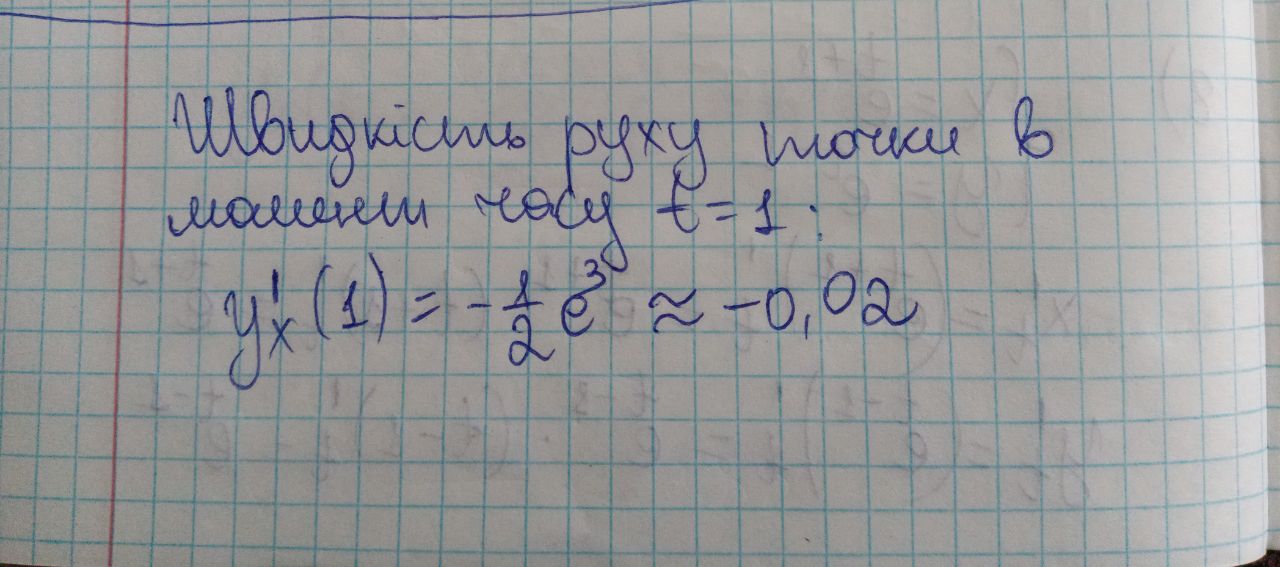 Швидкість руху точки в
момент часу t=1:
y'ₓ(1) = -1/2 e³ ≈ -0,02